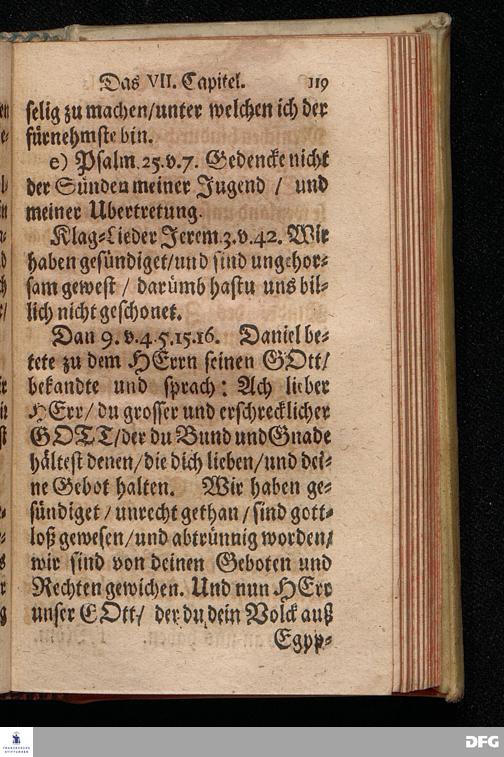 Das VII. Capitel. 119
selig zu machen/unter welchen ich der
fürnehmste bin.
e) Psalm. 25. v. 7. Gedencke nicht
der Sünden meiner Jugend / und
meiner Ubertretung.
Klag-Lieder Jerem. 3. v. 42. Wir
haben gesündiget/und sind ungehor-
sam gewest / darümb hastu uns bil-
lich nicht geschonet.
Dan 9. v. 4. 5. 15. 16. Daniel be-
tete zu dem HErrn seinen GOtt/
bekandte und sprach: Ach lieber
HErr/ du grosser und erschrecklicher
GOTT/der du Bund und Gnade
hältest denen/die dich lieben/und dei-
ne Gebot halten. Wir haben ge-
sündiget / unrecht gethan / sind gott-
loß gewesen/und abtrünnig worden/
wir sind von deinen Geboten und
Rechten gewichen. Und nun HErr
unser GOtt/ der du dein Volck auß
Egyp-
FRANCKESCHE
STIFTUNGEN
DFG